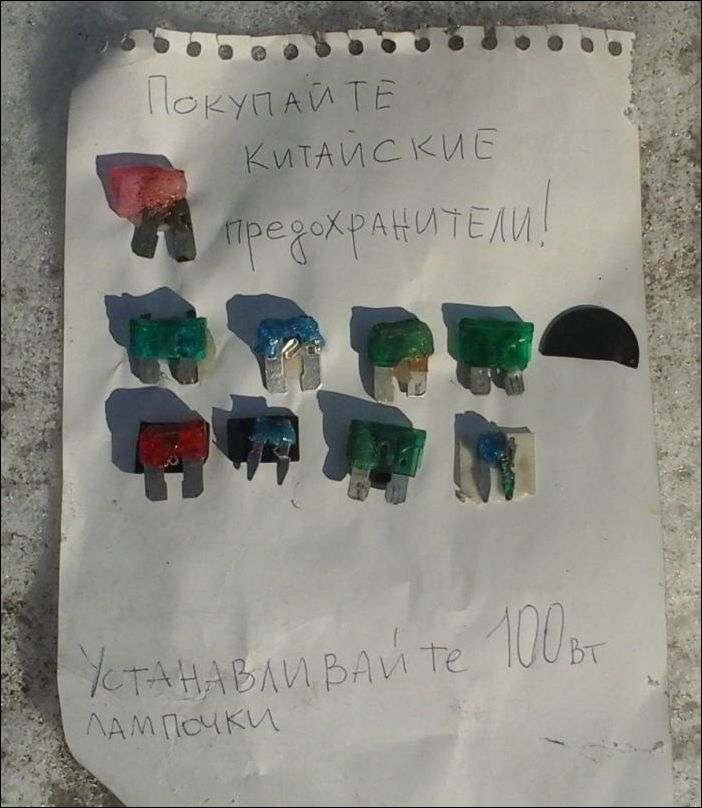 ПОКУПАЙТЕ
КИТАЙСКИЕ
предохранители!
УСТАНАВЛИВАЙте 100вт
лампочки